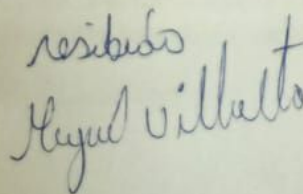 resibido
Miguel Villalta